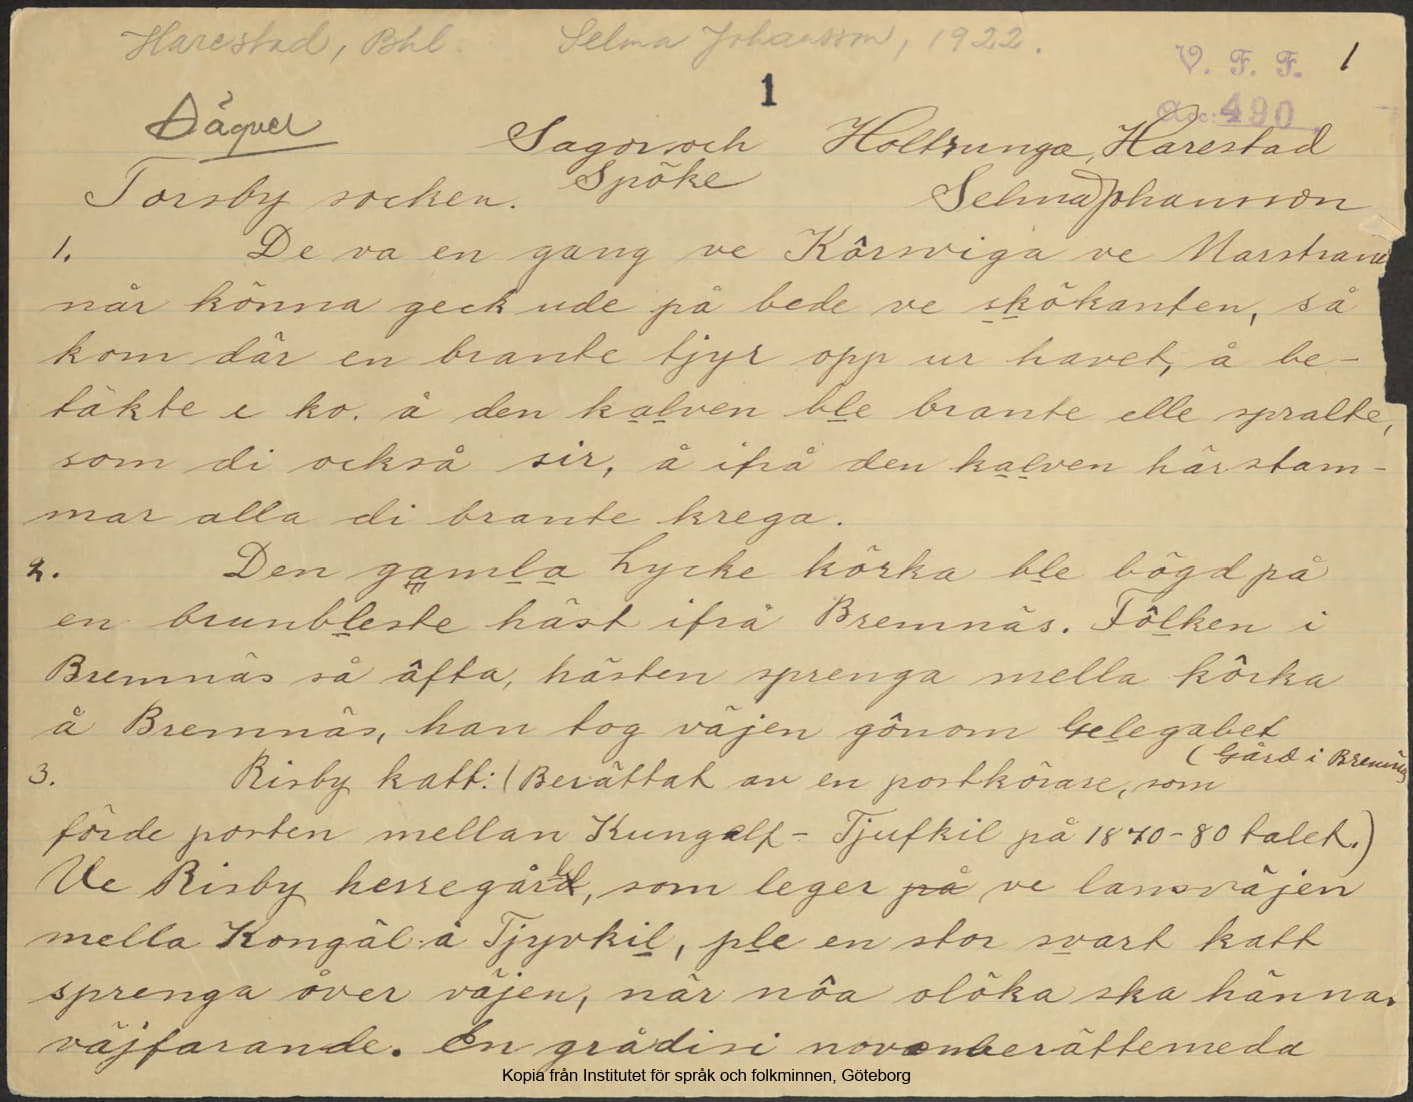 Harestad, Bhl. Selma Johansson, 1922.
V. F. F. 1
1
Acc: 490
Säquel
Sagor och Holtrunga, Harestad
Torsby socken. Spöke Selma Johansson
1. De va en gang ve Kôrsviga ve Marstrand
når könna geck ude på bede ve skökanten, så
kom där en brante tjyr opp ur havet, å be-
täkte e ko. å den kalven ble brante elle spralte,
som di också sir, å ifrå den kalven härstam-
mar alla di brante krega.
2. Den gamla Lycke körka ble bögd på
en brunbleste häst ifrå Bremnäs. Fôlken i
Bremnäs så âfta, hästen sprenga mella kôrka
å Bremnäs, han tog väjen gônom Gelegabet
(Gård i Bremnäs
3. Risby katt: (Berättat av en postkörare, som
förde posten mellan Kungelf - Tjufkil på 1870-80 talet.)
Ve Risby herregård, som leger på ve lansväjen
mella Kongäl å Tjyvkil, ple en stor svart katt
sprenga över väjen, när nôa olöka ska hänna
väjfarande. En grådisi novemberättemeda
Kopia från Institutet för språk och folkminnen, Göteborg